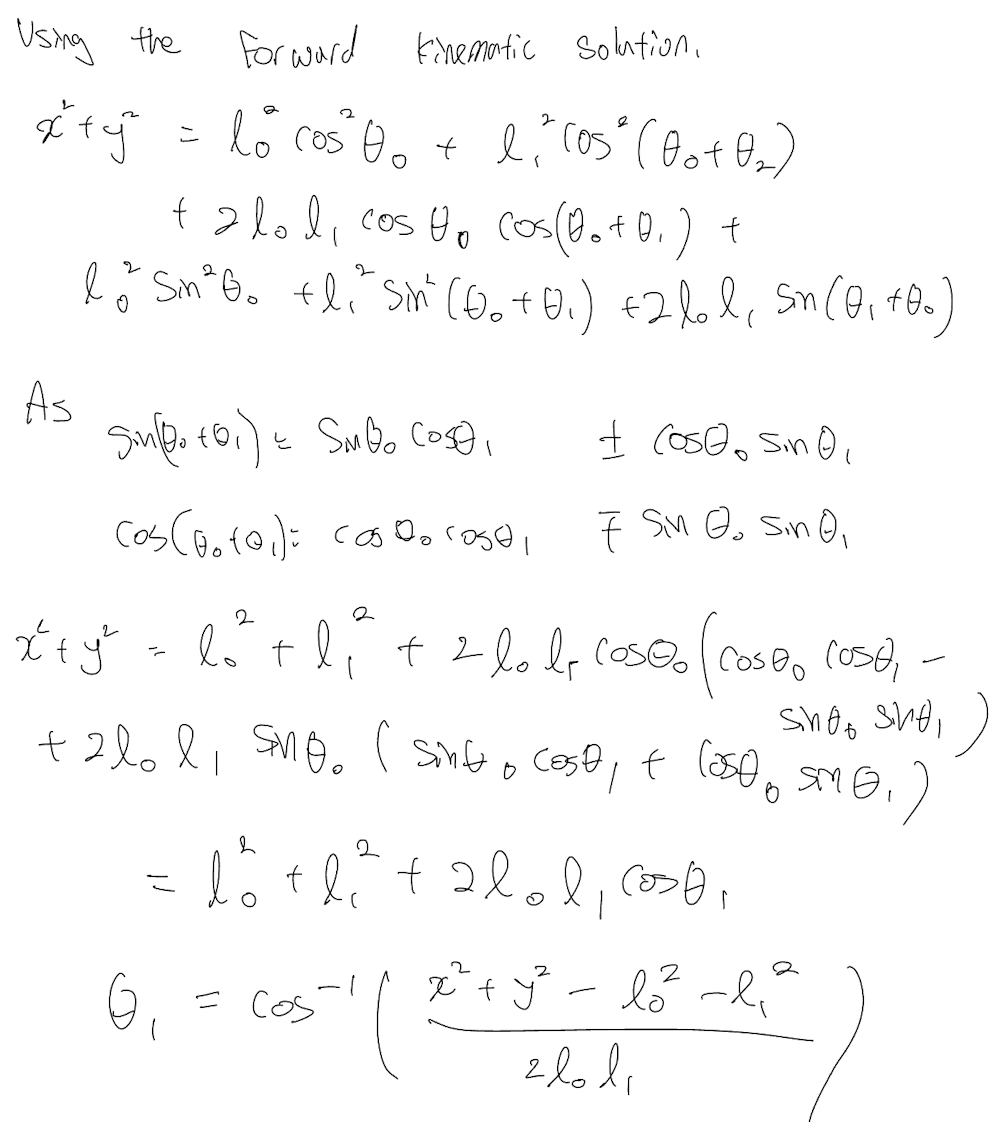 Using the forward kinematic solution.
x² + y² = l₀² cos²θ₀ + l₁² cos²(θ₀+θ₂)
+ 2l₀l₁ cosθ₀ cos(θ₀+θ₁) +
l₀² sin²θ₀ + l₁² sin²(θ₀+θ₁) + 2l₀l₁ sin(θ₁+θ₀)
As
sin(θ₀+θ₁) = sinθ₀ cosθ₁ ± cosθ₀ sinθ₁
cos(θ₀+θ₁) = cosθ₀ cosθ₁ ∓ sinθ₀ sinθ₁
x² + y² = l₀² + l₁² + 2l₀l₁ cosθ₀ (cosθ₀ cosθ₁ −
sinθ₀ sinθ₁)
+ 2l₀l₁ sinθ₀ (sinθ₀ cosθ₁ + cosθ₀ sinθ₁)
= l₀² + l₁² + 2l₀l₁ cosθ₁
θ₁ = cos⁻¹( (x² + y² − l₀² − l₁²) / 2l₀l₁ )